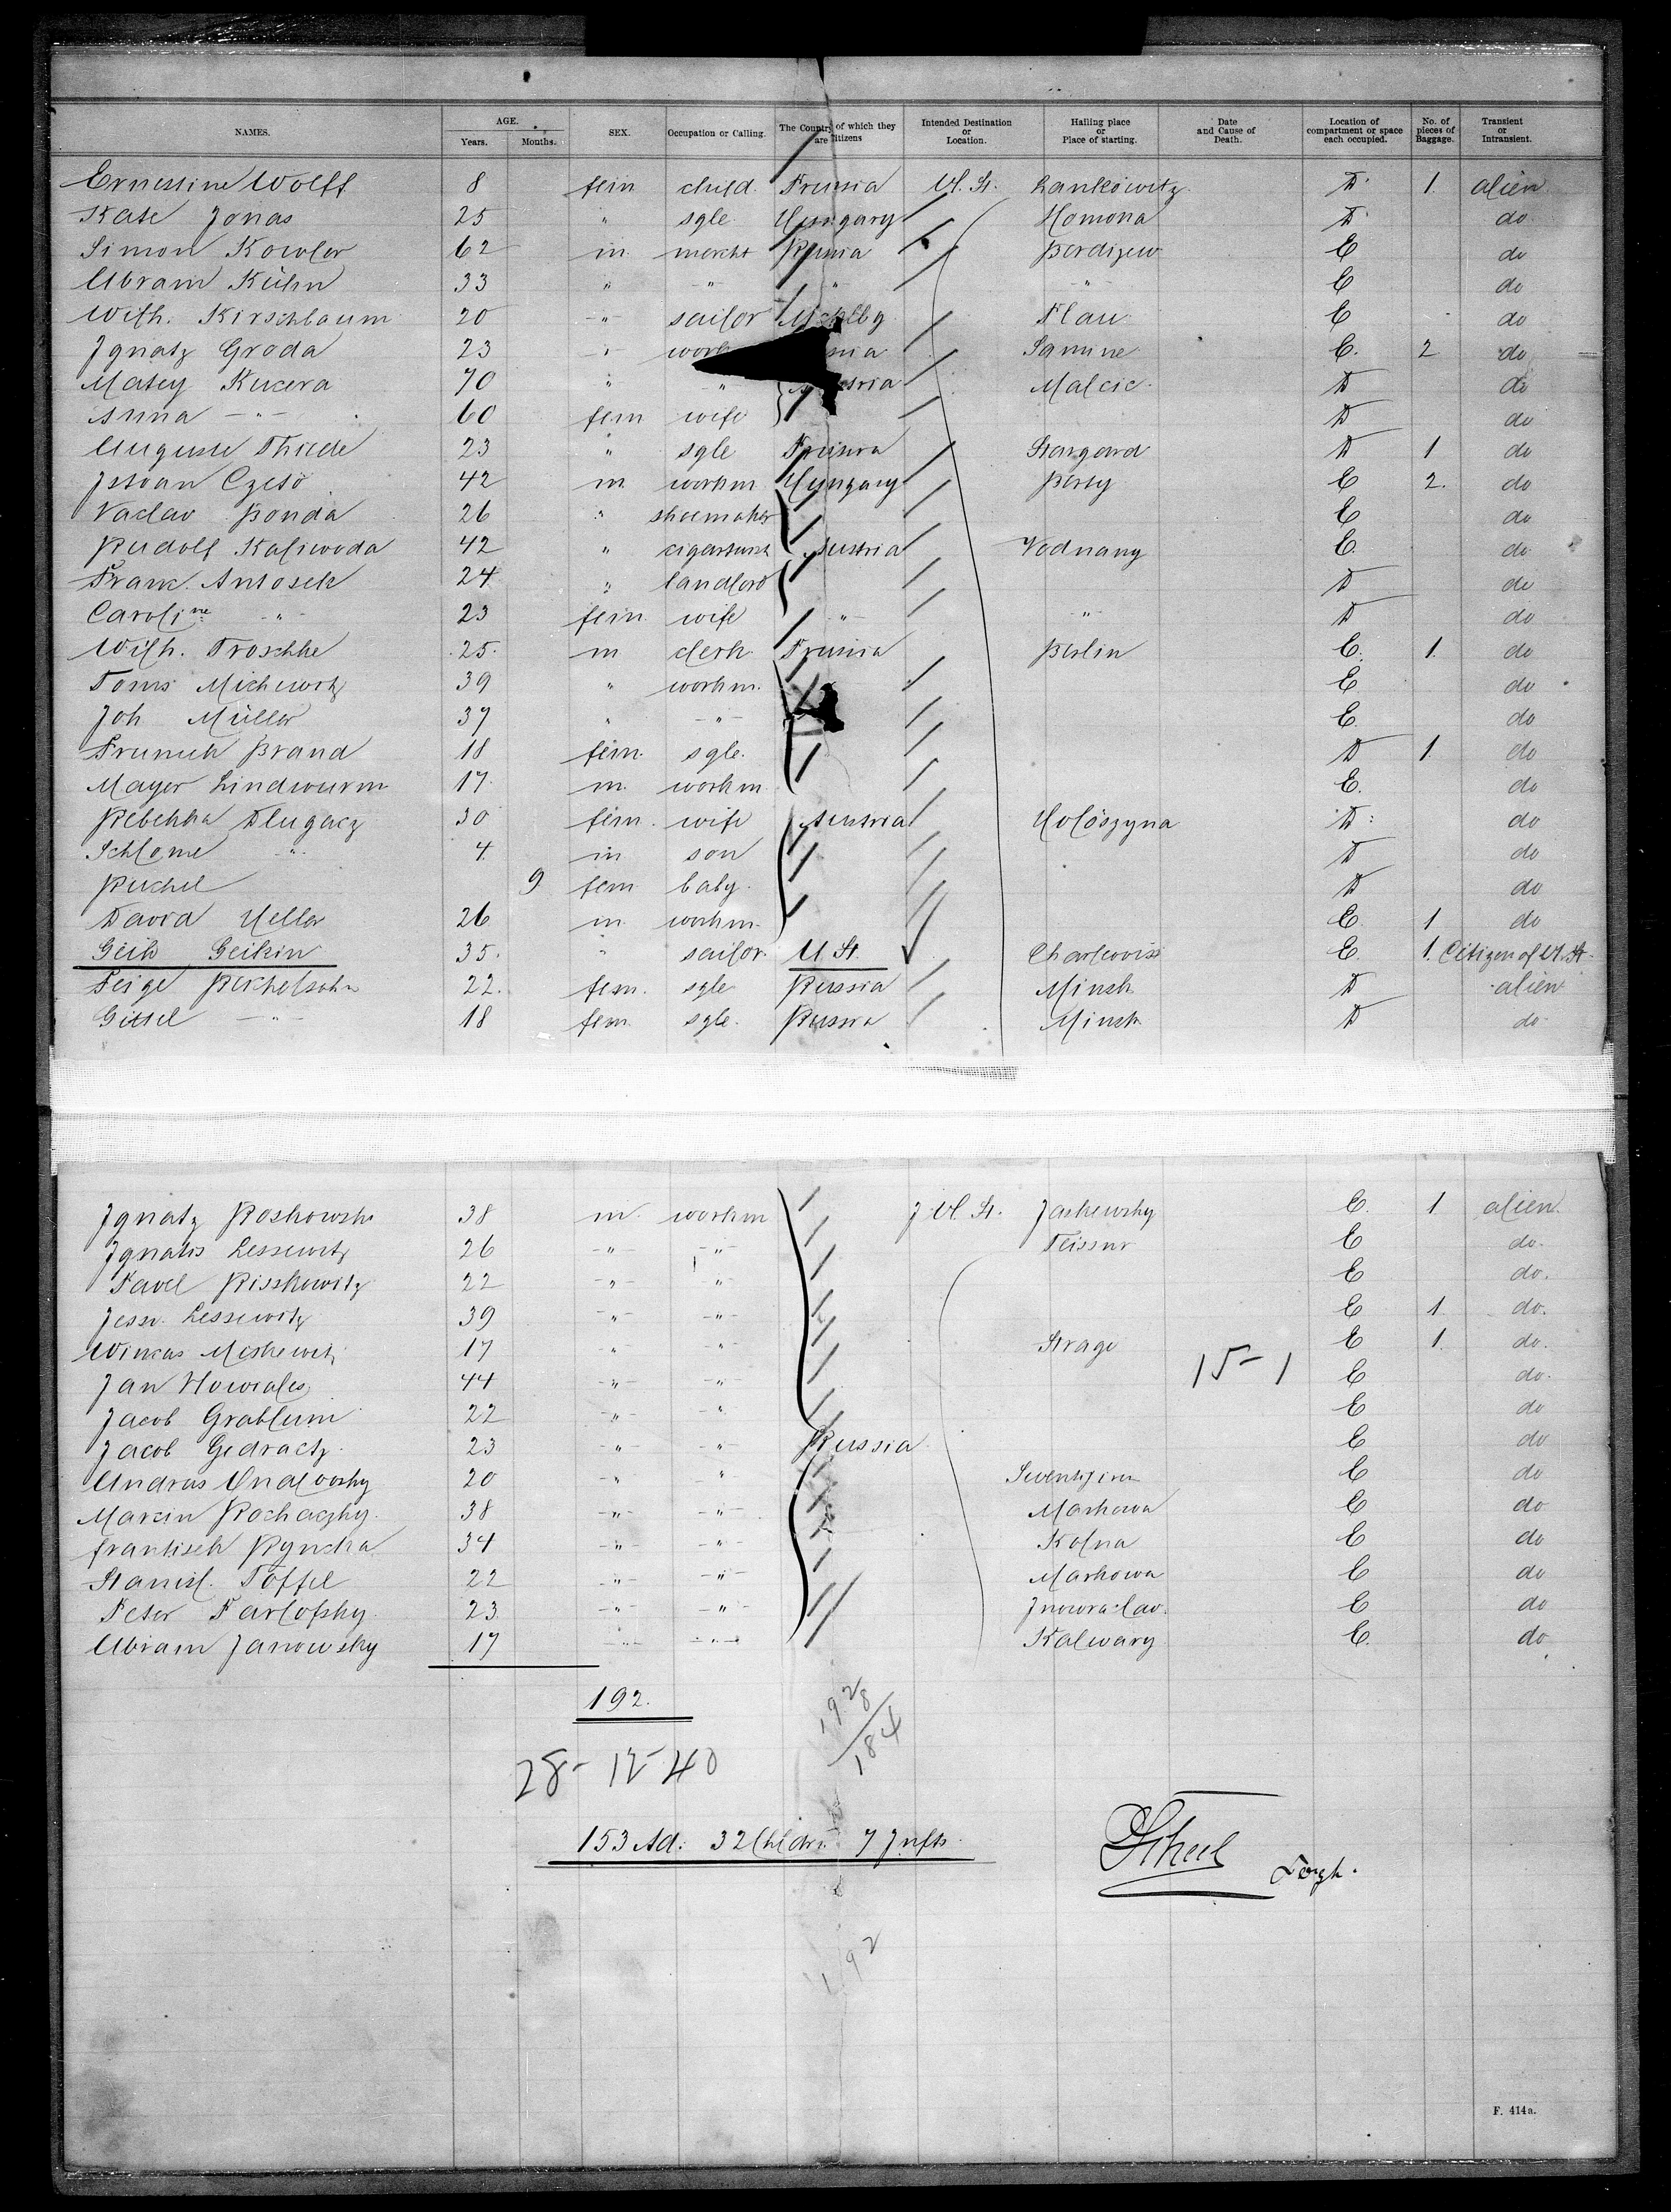 NAMES. AGE. Years. Months. SEX. Occupation or Calling. The Country of which they are Citizens Intended Destination or Location. Hailing place or Place of starting. Date and Cause of Death. Location of compartment or space each occupied. No. of pieces of Baggage. Transient or Intransient.
Ernestine Wolff 8 fem child. Prussia U. St. Lankowitz D 1. alien
Kate Jonas 25 " sgle Hungary Homona D do
Simon Kowler 62 m. mercht Russia Berdizew E do
Abram Kühn 33 " -"- " -"- E do
Wilh. Kirschbaum 20 -"- sailor Mcklbg Plau E do
Ignatz Groda 23 -"- work Samine E. 2 do
Matey Kucera 70 " -"- Austria Malcic D do
Anna -"- 60 fem wife D do
Auguste Thiede 23 " sgle Prussia Stargard D 1 do
Istvan Czeso 42 m. workm Hungary E 2. do
Vaclav Bonda 26 " shoemaker E do
Rudolf Kaliwoda 42 " Austria Vodnany E. do
Frank Antosch 24 " landlord D do
Caroline -"- 23 fem. wife -"- -"- D do
Wilh. Troschke 25. m clerk Prussia Berlin E. 1. do
Toms Michewitz 39 " workm. E do
Joh Müller 37 " -"- E do
Brand 18 fem. sgle. D 1. do
Mayer Lindwurm 17. m. workm E. do
Rebekka Dlugacz 30 fem. wife Austria Holoszyna D do
Schlome -"- 4. m son D do
Ruchel 9 fem baby. D do
David Heller 26 m. workm. E. 1 do
Geikin 35. " sailor. U St. Charlewoiss E. 1. Citizen of U. St.
Feige Ruchelsohn 22. fem. sgle Russia Minsk D alien
Gittel -"- 18 fem. sgle. Russia Minsk D do
Ignatz Roskowski 38 m. workm U. St. Jashewsky E. 1 alien.
Ignatis Lessewitz 26 -"- -"- Teissur E do.
Pavel Risskowitz 22 -"- -"- E do.
Lessewitz 39 -"- -"- E 1. do.
Wincas Miskewitz 17 -"- -"- Strage E 1. do.
15-1
Jan Nowrales 44 -"- -"- E do.
Jacob Grablum 22 -"- -"- E do
Jacob Gedractz. 23 -"- -"- Russia E do
Andrus 20 -"- -"- E do
Marcin Rochaczky. 38 -"- -"- Markowa E do
Frantisek Ryncka 34 -"- -"- Kolna E do
Stanisl. Toffel 22 -"- -"- Markowa E do
Peter Parlofsky. 23 -"- -"- Inowraclav. E do
Abram Janowsky 17 -"- -"- Kalwary E. do
192.
192
8
184
28-12-40
153 Ad. 32 Chldr. 7 Infts.
192
F. 414a.